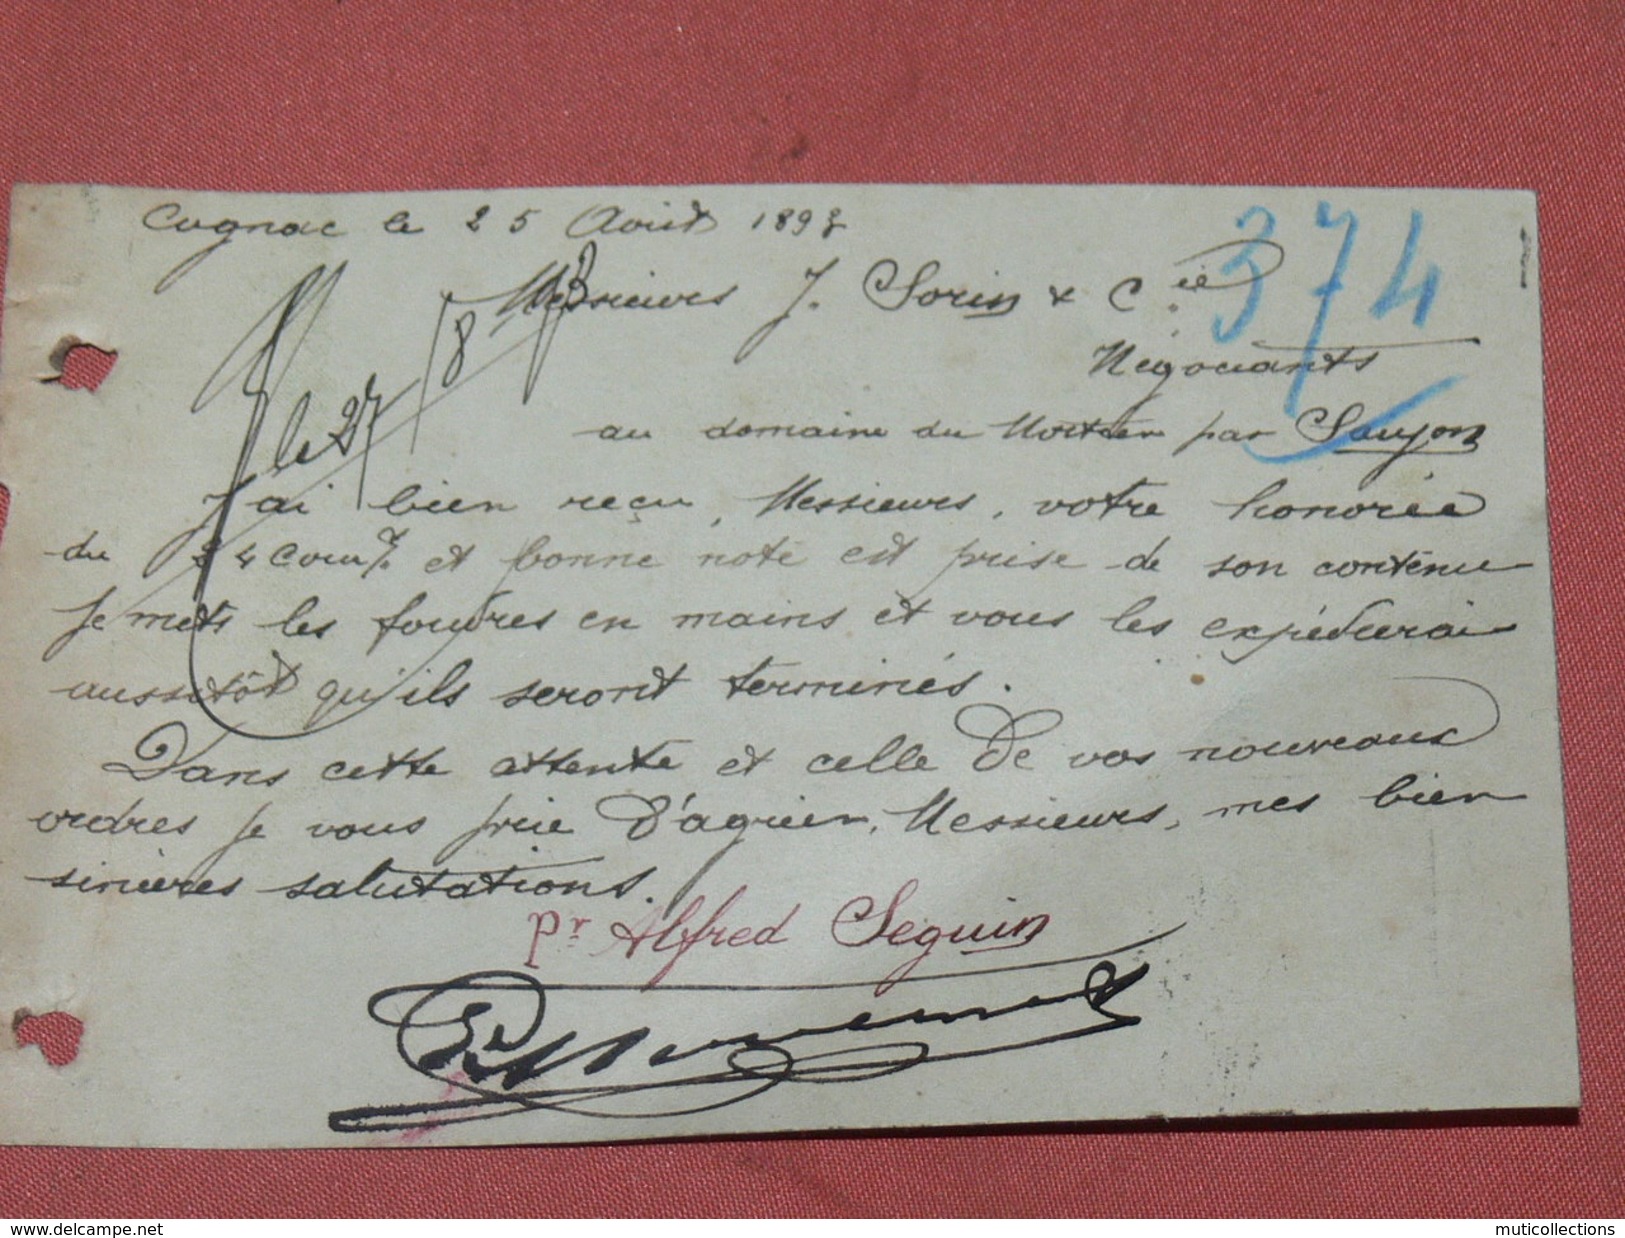 Cognac le 25 Août 1893
374
Messieurs J. Sorin & Cie
Négociants
au domaine du Mortier par Saujon
R le 27/8/93
J'ai bien reçu, Messieurs, votre honorée
du 24 court et bonne note est prise de son contenu
Je mets les foudres en mains et vous les expédierai
aussitôt qu'ils seront terminés.
Dans cette attente et celle de vos nouveaux
ordres je vous prie d'agréer, Messieurs, mes bien
sincères salutations.
pr Alfred Seguin
www.delcampe.net
muticollections